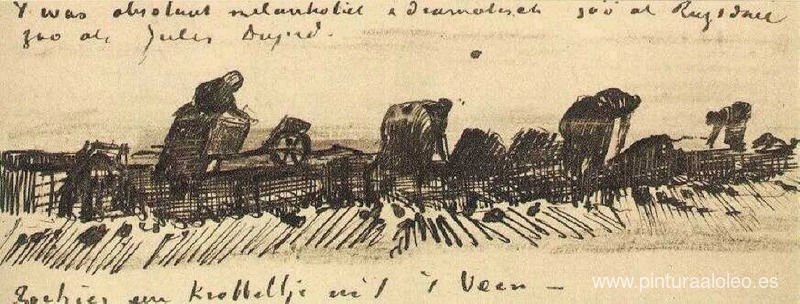 't was absoluut melankoliek & dramatisch zóó als Ruysdael
zoo als Jules Dupré.
Zoehier een krabbeltje uit 't Veen —
www.pinturaaloleo.es